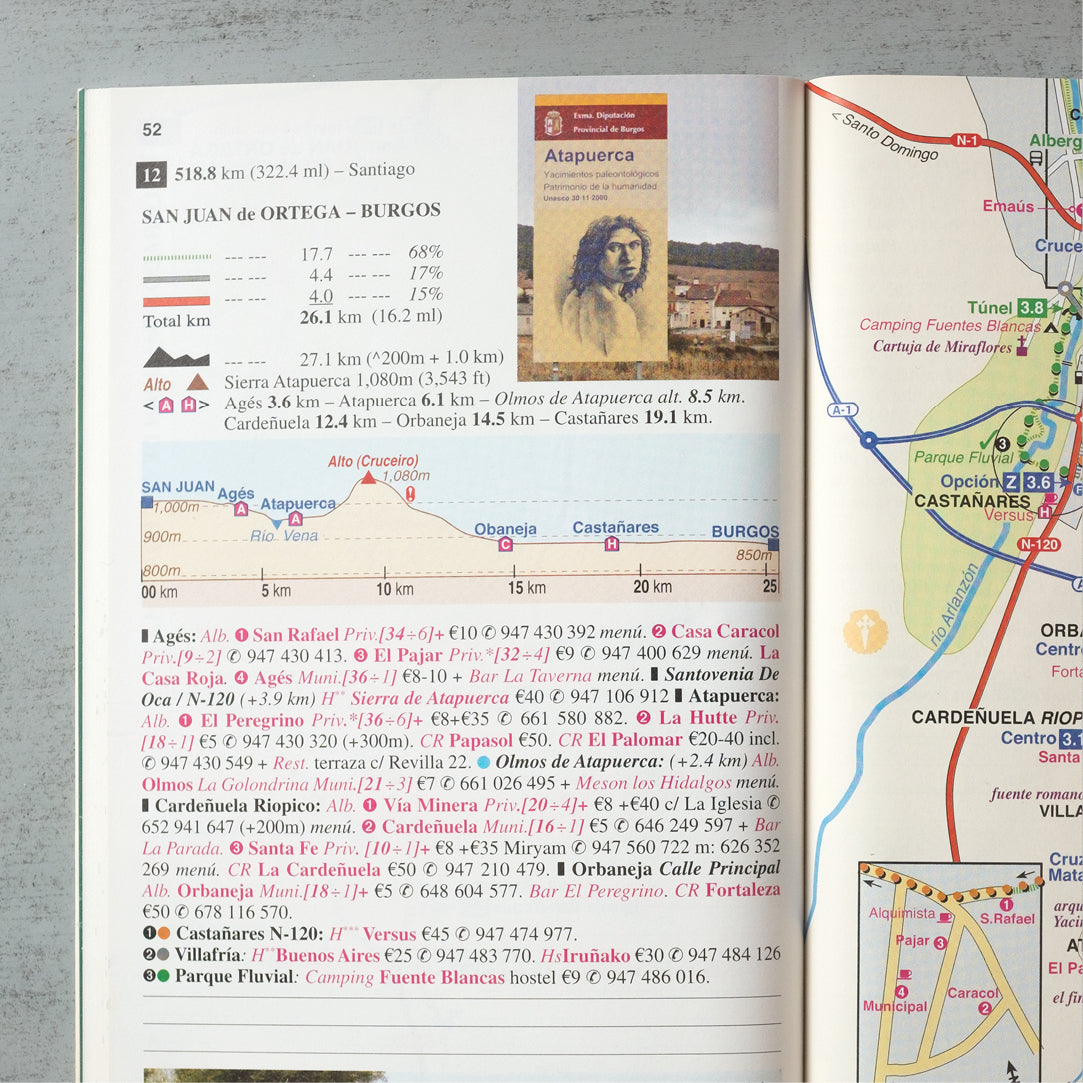 52
12 518.8 km (322.4 ml) – Santiago
SAN JUAN de ORTEGA – BURGOS
--- --- 17.7 --- --- 68%
--- --- 4.4 --- --- 17%
--- --- 4.0 --- --- 15%
Total km 26.1 km (16.2 ml)
--- --- 27.1 km (^200m + 1.0 km)
Alto Sierra Atapuerca 1,080m (3,543 ft)
< A H > Agés 3.6 km – Atapuerca 6.1 km – Olmos de Atapuerca alt. 8.5 km.
Cardeñuela 12.4 km – Orbaneja 14.5 km – Castañares 19.1 km.
Exma. Diputación
Provincial de Burgos
Atapuerca
Yacimientos paleontológicos
Patrimonio de la humanidad
Unesco 30·11·2000
Alto (Cruceiro)
1,080m
SAN JUAN
Agés
Atapuerca
1,000m
A
A
Río Vena
Obaneja
Castañares
BURGOS
900m
C
H
850m
800m
00 km 5 km 10 km 15 km 20 km 25
Agés: Alb. ❶ San Rafael Priv.[34÷6]+ €10 ✆ 947 430 392 menú. ❷ Casa Caracol
Priv.[9÷2] ✆ 947 430 413. ❸ El Pajar Priv.*[32÷4] €9 ✆ 947 400 629 menú. La
Casa Roja. ❹ Agés Muni.[36÷1] €8-10 + Bar La Taverna menú. Santovenia De
Oca / N-120 (+3.9 km) H** Sierra de Atapuerca €40 ✆ 947 106 912 Atapuerca:
Alb. ❶ El Peregrino Priv.*[36÷6]+ €8+€35 ✆ 661 580 882. ❷ La Hutte Priv.
[18÷1] €5 ✆ 947 430 320 (+300m). CR Papasol €50. CR El Palomar €20-40 incl.
✆ 947 430 549 + Rest. terraza c/ Revilla 22. Olmos de Atapuerca: (+2.4 km) Alb.
Olmos La Golondrina Muni.[21÷3] €7 ✆ 661 026 495 + Meson los Hidalgos menú.
Cardeñuela Riopico: Alb. ❶ Vía Minera Priv.[20÷4]+ €8 +€40 c/ La Iglesia ✆
652 941 647 (+200m) menú. ❷ Cardeñuela Muni.[16÷1] €5 ✆ 646 249 597 + Bar
La Parada. ❸ Santa Fe Priv. [10÷1]+ €8 +€35 Miryam ✆ 947 560 722 m: 626 352
269 menú. CR La Cardeñuela €50 ✆ 947 210 479. Orbaneja Calle Principal
Alb. Orbaneja Muni.[18÷1]+ €5 ✆ 648 604 577. Bar El Peregrino. CR Fortaleza
€50 ✆ 678 116 570.
❶ Castañares N-120: H*** Versus €45 ✆ 947 474 977.
❷ Villafría: H**Buenos Aires €25 ✆ 947 483 770. HsIruñako €30 ✆ 947 484 126
❸ Parque Fluvial: Camping Fuente Blancas hostel €9 ✆ 947 486 016.
< Santo Domingo
N-1
Alberg
Emaús
Cruce
Túnel 3.8
Camping Fuentes Blancas
Cartuja de Miraflores
A-1
❸
Parque Fluvial
Opción Z 3.6
CASTAÑARES
Versus H
N-120
río Arlanzón
ORBA
Centro
Forta
CARDEÑUELA RIOP
Centro 3.1
Santa
fuente romano
VILLA
Cruz
Mata
Alquimista
❶
S.Rafael
Pajar ❸
❹
Municipal
Caracol
❷
arqu
Yacin
AT
El Pa
el fin